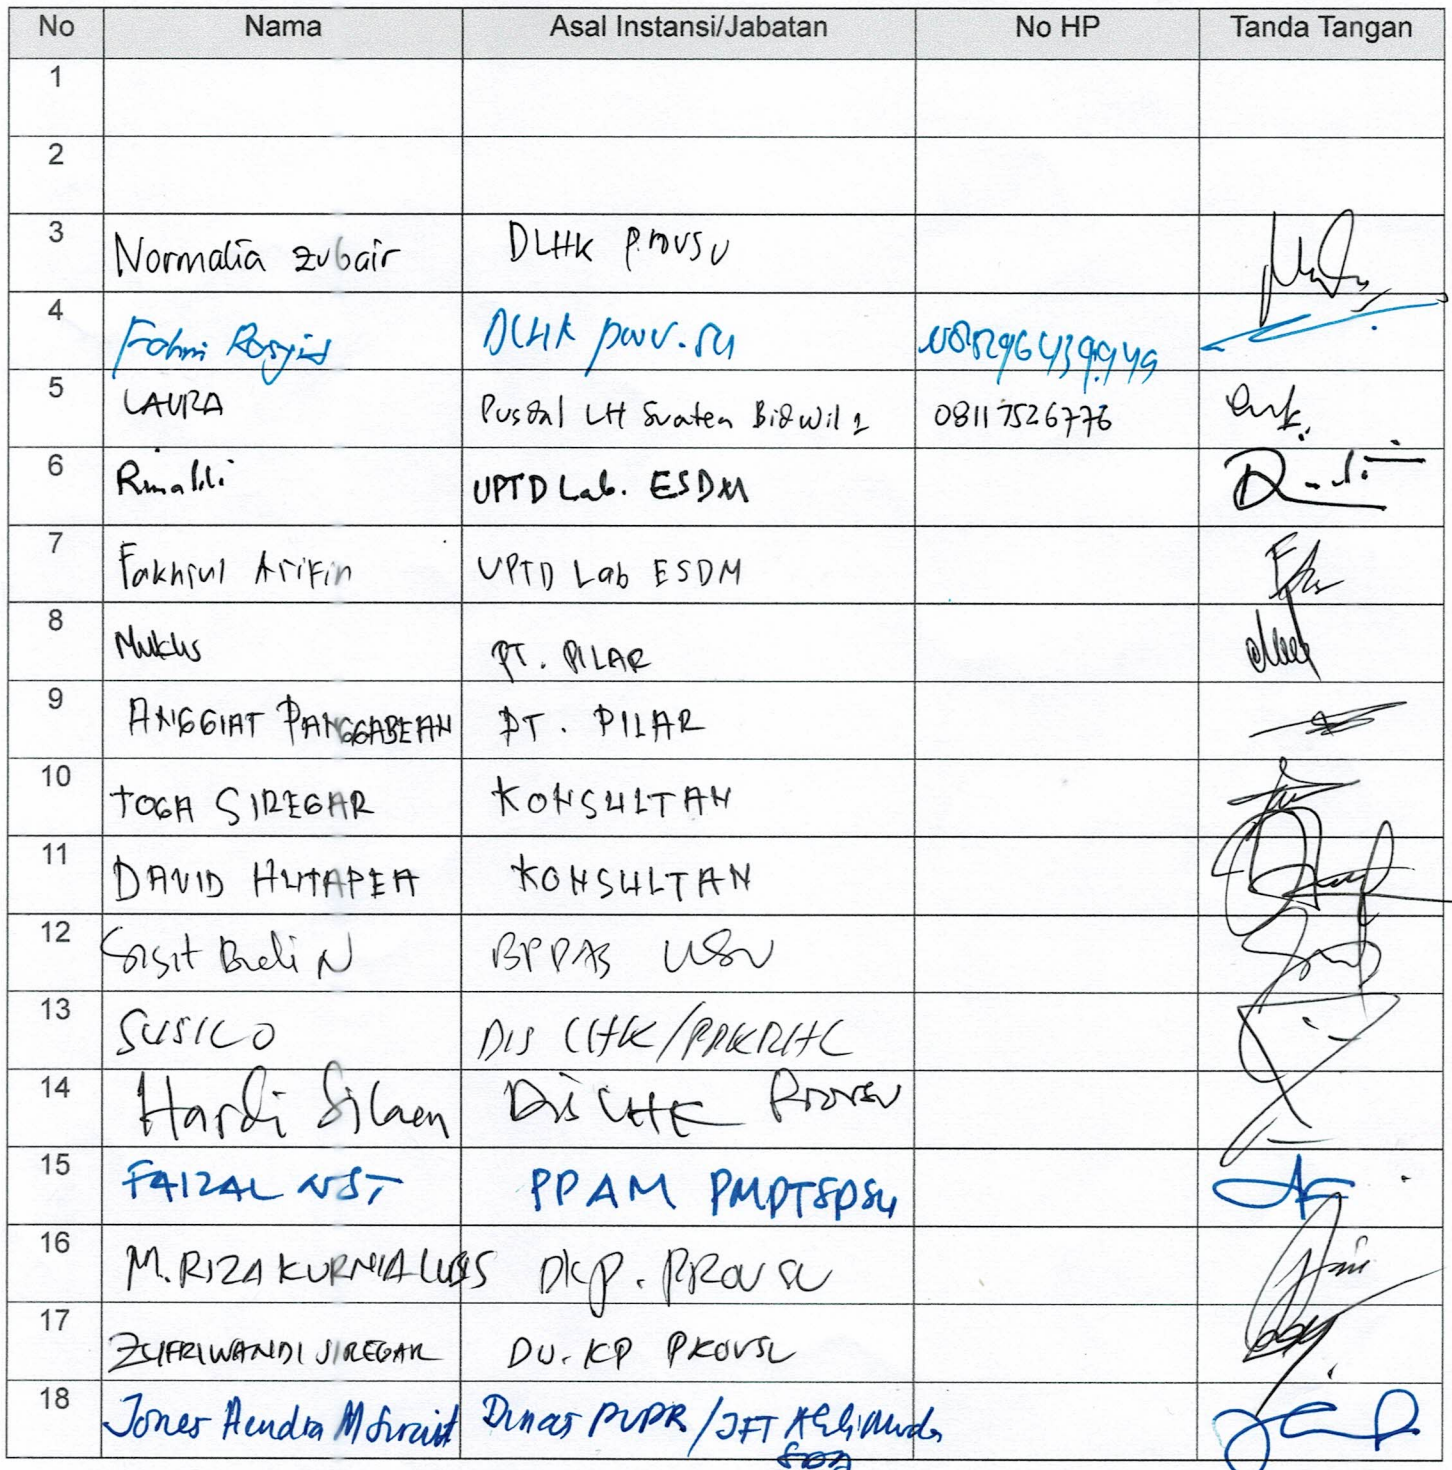 No Nama Asal Instansi/Jabatan No HP Tanda Tangan
1
2
3 Normalia Zubair DLHK Provsu
4 Fahmi Rosyid DLHK prov.su
5 LAURA Pusdal LH Suatea Bidwil 2 08117526776
6 Rinaldi UPTD Lab. ESDM
7 Fakhrul Arifin UPTD Lab ESDM
8 Muklis PT. PILAR
9 ANGGIAT PANGGABEAN PT. PILAR
10 TOGA SIREGAR KONSULTAN
11 DAVID HUTAPEA KONSULTAN
12 Sigit Budi N USU
13 SUSILO DIS LHK/
14 Hardi Silaen Dis LHK Provsu
15 FAIZAL NST PPAM PMPTSPSU
16 M. RIZA KURNIA LUBIS DKP. PROVSU
17 ZULFRIWANDI SIREGAR KP PROVSU
18 Jones Hendra M Sirait Dinas PUPR/JFT Ahli Muda
SDA